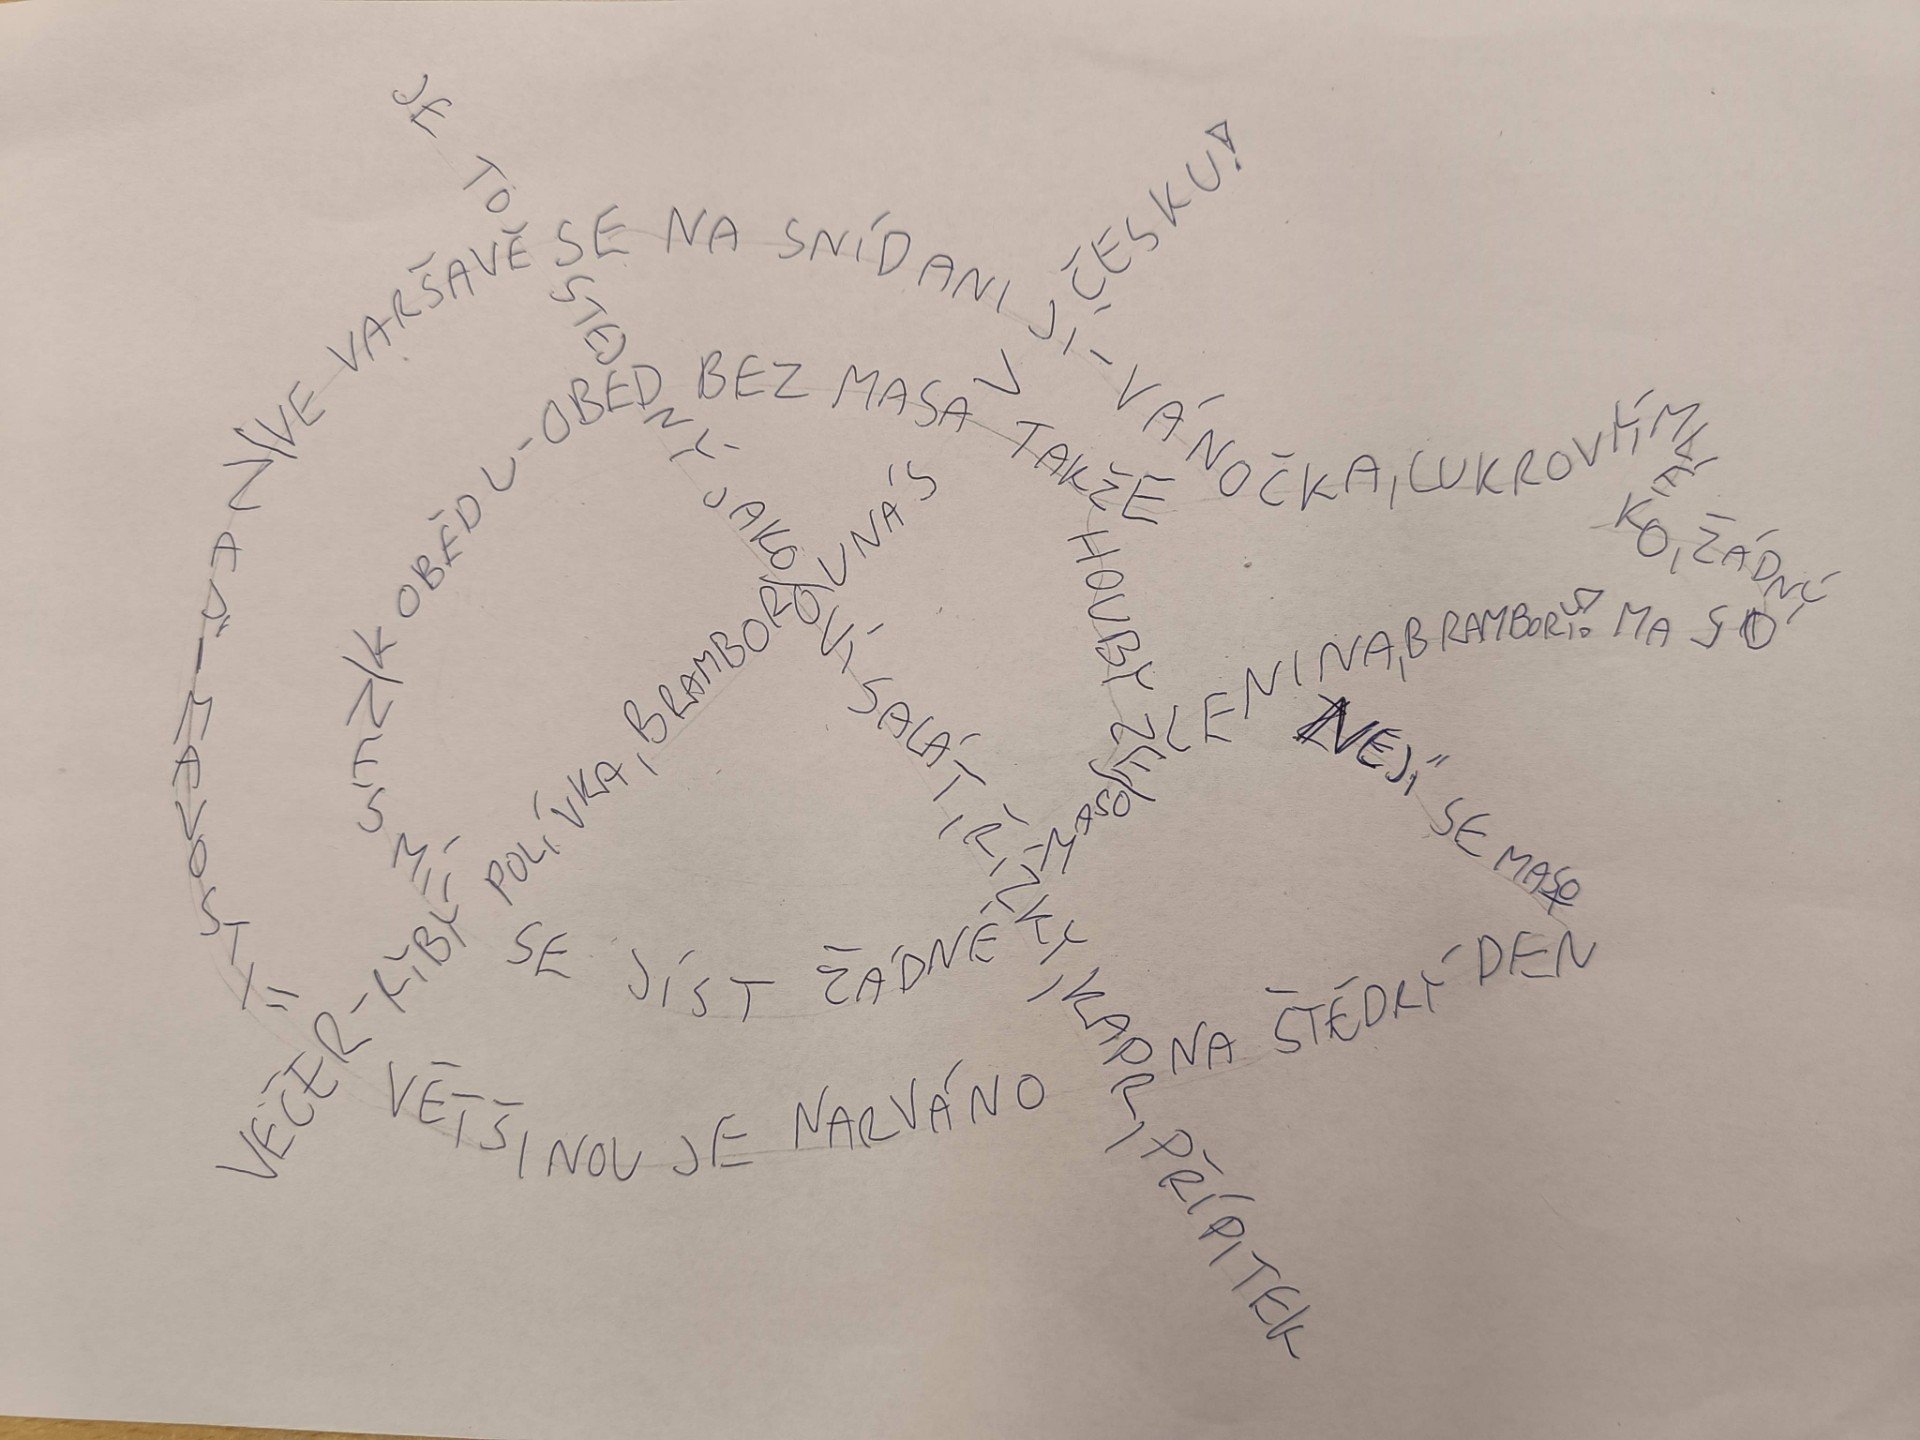 VE VARŠAVĚ SE NA SNÍDANI JÍ - VÁNOČKA, CUKROVÍ, ŽÁDNÝ MASO
K OBĚDU - OBĚD BEZ MASA TAKŽE HOUBY ZELENINA, BRAMBORY
SE JÍST ŽÁDNÉ MASO
VĚTŠINOU JE NARVÁNO NA ŠTĚDRÝ DEN NEJÍ SE MASO
VEČER - RIBY POLÍVKA, BRAMBOROVÍ SALÁT, ŘÍZKY, KAPR, PŘÍPITEK
JE TO STEJNÝ JAKO U NÁS V ČESKU!